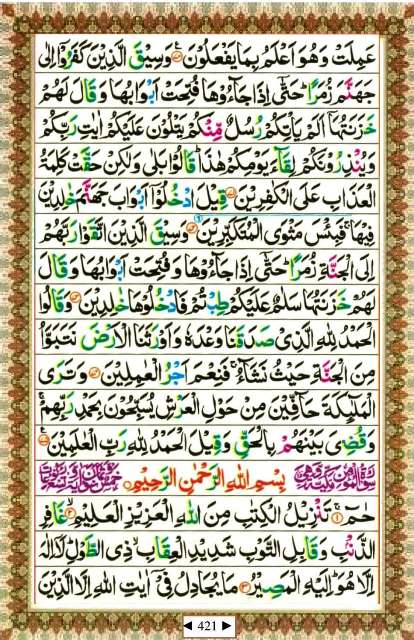 عَمِلَتْ وَهُوَ اَعْلَمُ بِمَا يَفْعَلُوْنَ ۞ وَسِيْقَ الَّذِيْنَ كَفَرُوْۤا اِلٰى
جَهَنَّمَ زُمَرًا ؕ حَتّٰۤى اِذَا جَآءُوْهَا فُتِحَتْ اَبْوَابُهَا وَقَالَ لَهُمْ
خَزَنَتُهَاۤ اَلَمْ يَاْتِكُمْ رُسُلٌ مِّنْكُمْ يَتْلُوْنَ عَلَيْكُمْ اٰيٰتِ رَبِّكُمْ
وَيُنْذِرُوْنَكُمْ لِقَآءَ يَوْمِكُمْ هٰذَا ؕ قَالُوْا بَلٰى وَلٰكِنْ حَقَّتْ كَلِمَةُ
الْعَذَابِ عَلَى الْكٰفِرِيْنَ ۞ قِيْلَ ادْخُلُوْۤا اَبْوَابَ جَهَنَّمَ خٰلِدِيْنَ
فِيْهَا ۚ فَبِئْسَ مَثْوَى الْمُتَكَبِّرِيْنَ ۞ وَسِيْقَ الَّذِيْنَ اتَّقَوْا رَبَّهُمْ
اِلَى الْجَنَّةِ زُمَرًا ؕ حَتّٰۤى اِذَا جَآءُوْهَا وَفُتِحَتْ اَبْوَابُهَا وَقَالَ
لَهُمْ خَزَنَتُهَا سَلٰمٌ عَلَيْكُمْ طِبْتُمْ فَادْخُلُوْهَا خٰلِدِيْنَ ۞ وَقَالُوا
الْحَمْدُ لِلّٰهِ الَّذِيْ صَدَقَنَا وَعْدَهٗ وَاَوْرَثَنَا الْاَرْضَ نَتَبَوَّاُ
مِنَ الْجَنَّةِ حَيْثُ نَشَآءُ ۚ فَنِعْمَ اَجْرُ الْعٰمِلِيْنَ ۞ وَتَرَى
الْمَلٰٓئِكَةَ حَآفِّيْنَ مِنْ حَوْلِ الْعَرْشِ يُسَبِّحُوْنَ بِحَمْدِ رَبِّهِمْ ۚ
وَقُضِيَ بَيْنَهُمْ بِالْحَقِّ وَقِيْلَ الْحَمْدُ لِلّٰهِ رَبِّ الْعٰلَمِيْنَ ۞
بِسْمِ اللّٰهِ الرَّحْمٰنِ الرَّحِيْمِ
حٰمٓ ۞ تَنْزِيْلُ الْكِتٰبِ مِنَ اللّٰهِ الْعَزِيْزِ الْعَلِيْمِ ۞ غَافِرِ
الذَّنْۢبِ وَقَابِلِ التَّوْبِ شَدِيْدِ الْعِقَابِ ذِي الطَّوْلِ ؕ لَاۤ اِلٰهَ
اِلَّا هُوَ ؕ اِلَيْهِ الْمَصِيْرُ ۞ مَا يُجَادِلُ فِيْۤ اٰيٰتِ اللّٰهِ اِلَّا الَّذِيْنَ
421